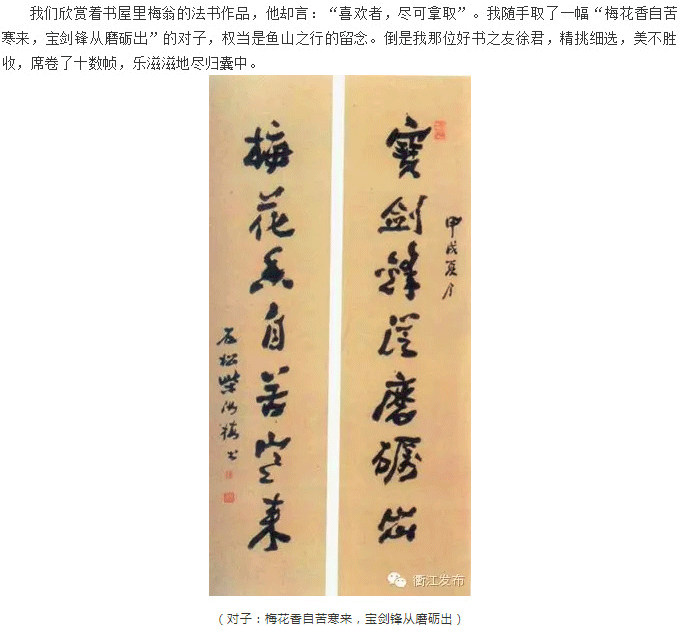 我们欣赏着书屋里梅翁的法书作品，他却言：“喜欢者，尽可拿取”。我随手取了一幅“梅花香自苦
寒来，宝剑锋从磨砺出”的对子，权当是鱼山之行的留念。倒是我那位好书之友徐君，精挑细选，美不胜
收，席卷了十数帧，乐滋滋地尽归囊中。
寶剑鋒從磨礪出
甲戌夏月
梅花香自苦寒来
石松柴汝梅书
衢江发布
（对子：梅花香自苦寒来，宝剑锋从磨砺出）